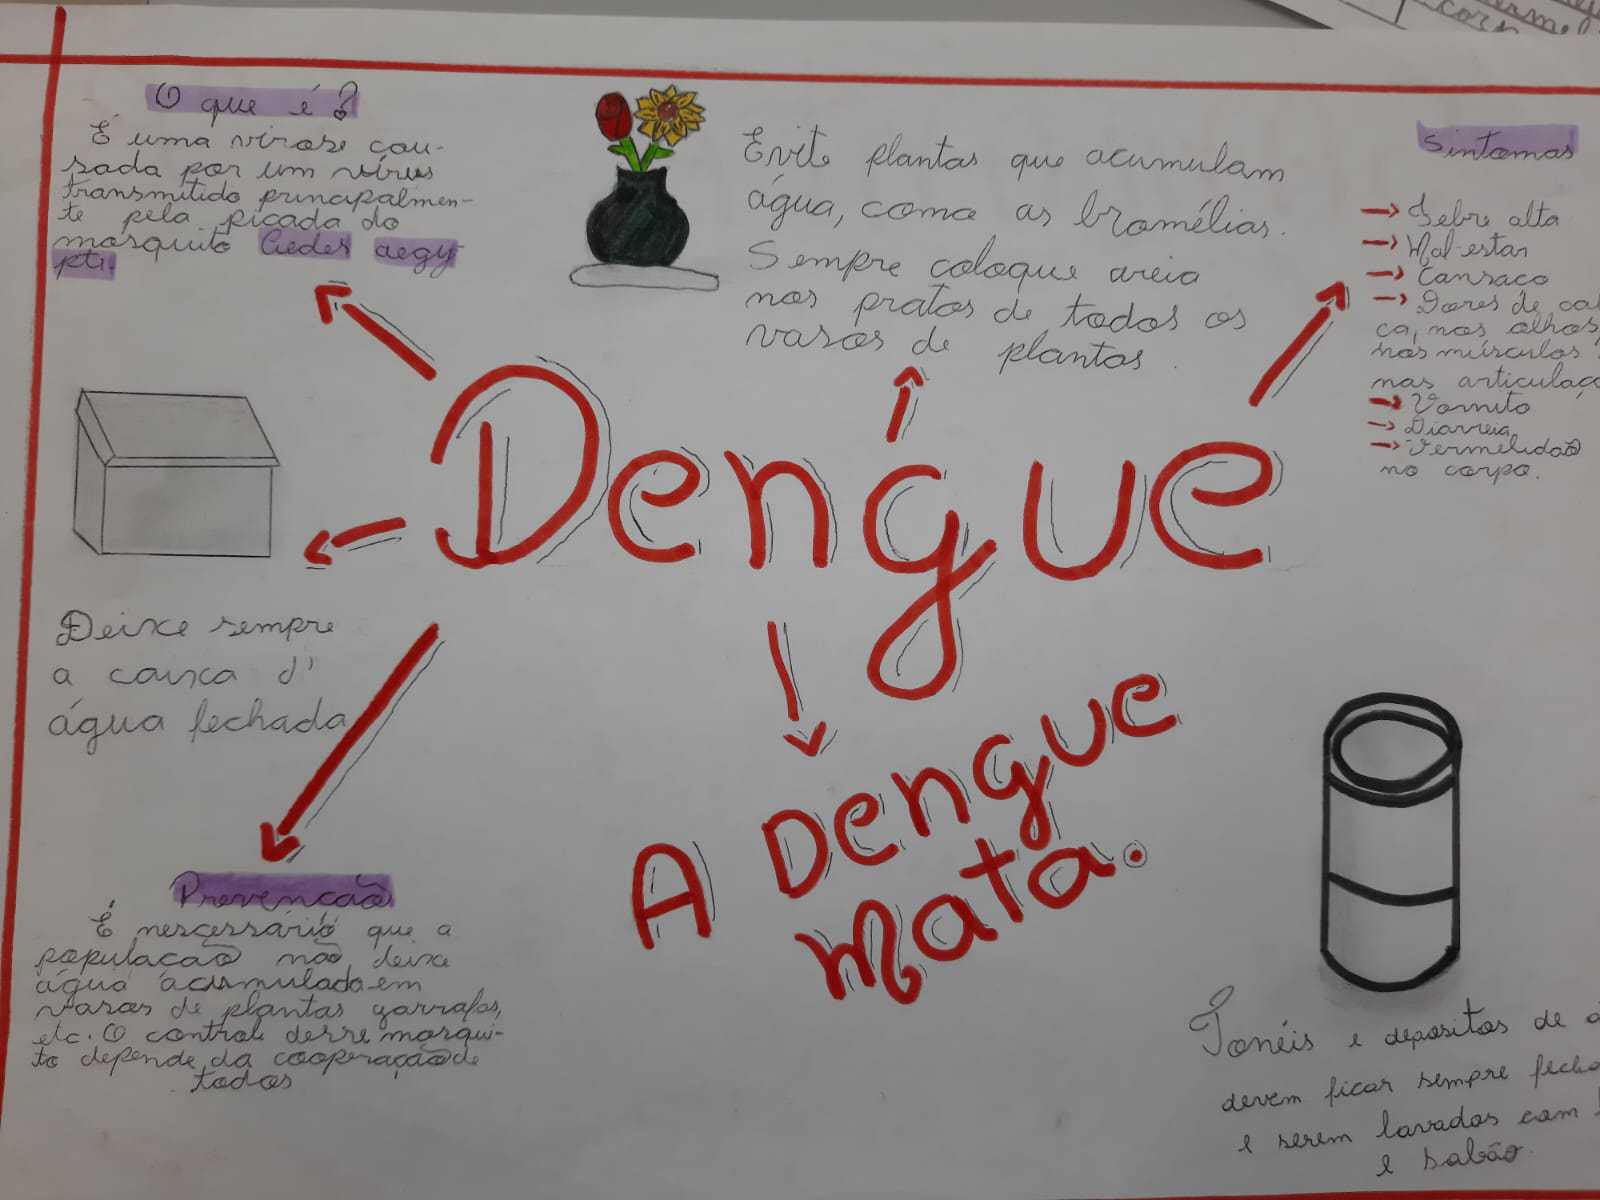 O que é?
É uma virose cau-
sada por um vírus
transmitido principalmen-
te pela picada do
mosquito Aedes aegy-
pti.
Evite plantas que acumulam
água, como as bromélias.
Sempre coloque areia
nos pratos de todos os
vasos de plantas.
Sintomas
→ Febre alta
→ Mal-estar
→ Cansaco
→ Dores de
ca, nos olhos
nos músculos
nas
→ Vomito
→ Diarreia
→ Vermelidão
no corpo.
Dengue
Deixe sempre
a caixa d'
água fechada
A Dengue
Mata.
Prevencão
É nescessário que a
população não deixe
água acumulada em
vasos de plantas garrafas,
etc. O controle desse mosqui-
to depende da cooperação de
todos
Tonéis e depositos de
devem ficar sempre
e serem lavados com
e sabão.